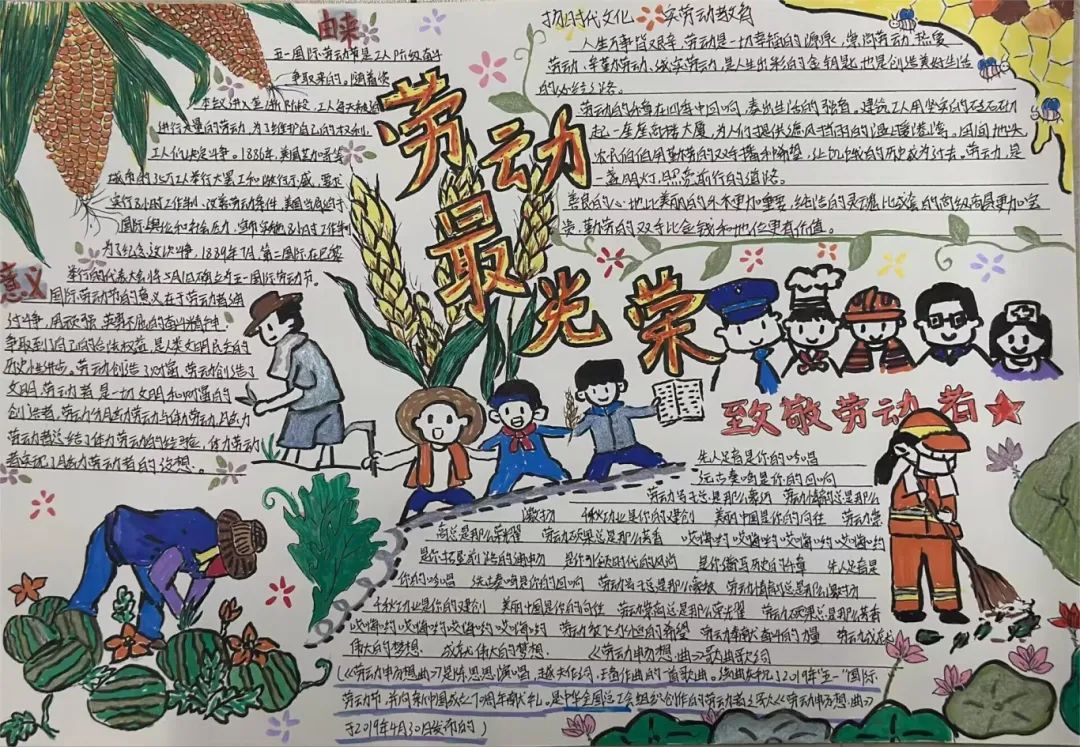 由来
五一国际劳动节是工人阶级奋斗
争取来的。随着资
本主义进入垄断阶段,工人每天被迫
进行大量的劳动,为了维护自己的权利,
工人们决定斗争。1886年,美国芝加哥等
城市的35万工人举行大罢工和游行示威,要求
实行8小时工作制,改善劳动条件,美国当局迫于
国际舆论和社会压力,宣布实施8小时工作制
为了纪念这次斗争,1889年7月,第二国际在巴黎
举行的代表大会将5月1日确立为五一国际劳动节。
意义
国际劳动节的意义在于劳动者通
过斗争,用顽强、英勇不屈的奋斗精神,
争取到了自己的合法权益,是人类文明民主的
历史性进步,劳动创造了财富,劳动创造了
文明,劳动者是一切文明和财富的
创造者,劳动分脑力劳动与体力劳动,脑力
劳动者总结了体力劳动的经验,体力劳动
者实现了脑力劳动者的设想。
劳动
最
光荣
扬时代文化 实劳动教育
人生万事皆艰辛,劳动是一切幸福的源泉,崇尚劳动、热爱
劳动、辛勤劳动、诚实劳动,是人生出彩的金钥匙,也是创造美好生活
的必经之路。
劳动的乐章在四季中回响,奏出生活的强音,建筑工人用坚实的砖石砌
起一座座高楼大厦,为人们提供遮风挡雨的温暖港湾。田间地头
农民伯伯用勤劳的双手播种希望,让饥饿的历史成为过去。劳动,是
一盏明灯,照亮前行的道路。
善良的心地比美丽的外表更加重要,纯洁的灵魂比成套的高级商品更加宝
贵,勤劳的双手比金钱和地位更有价值。
致敬劳动者
生人足音是你的吟唱
远古奏鸣是你的回响
劳动号子总是那么豪迈 劳动情韵总是那么
激扬 千秋功业是你的建创 美丽中国是你的向往 劳动崇
高总是那么荣耀 劳动硕果总是那么芳香 哎嗨哟哎嗨哟哎嗨哟哎嗨哟
是你 生人足音是
你的吟唱 远古奏鸣是你的回响 劳动号子总是那么豪放 劳动情韵总是那么激扬
千秋功业是你的建创 美丽中国是你的向往 劳动崇高总是那么荣耀 劳动硕果总是那么芳香
哎嗨哟哎嗨哟哎嗨哟哎嗨哟 劳动放飞 的希望 劳动奉献奋斗的力量 劳动成就
伟大的梦想 成就伟大的梦想。 《劳动串梦想曲》歌曲歌词
(《劳动串梦想曲》是陈思思演唱,赵大 作词,王 作曲的一首歌曲。该曲为庆祝了2019年"五一"国际
劳动节,并向新中国成立70周年献礼,是中华全国总工会组织创作的劳动者之歌《劳动串梦想曲》
于2019年4月30日发布的)